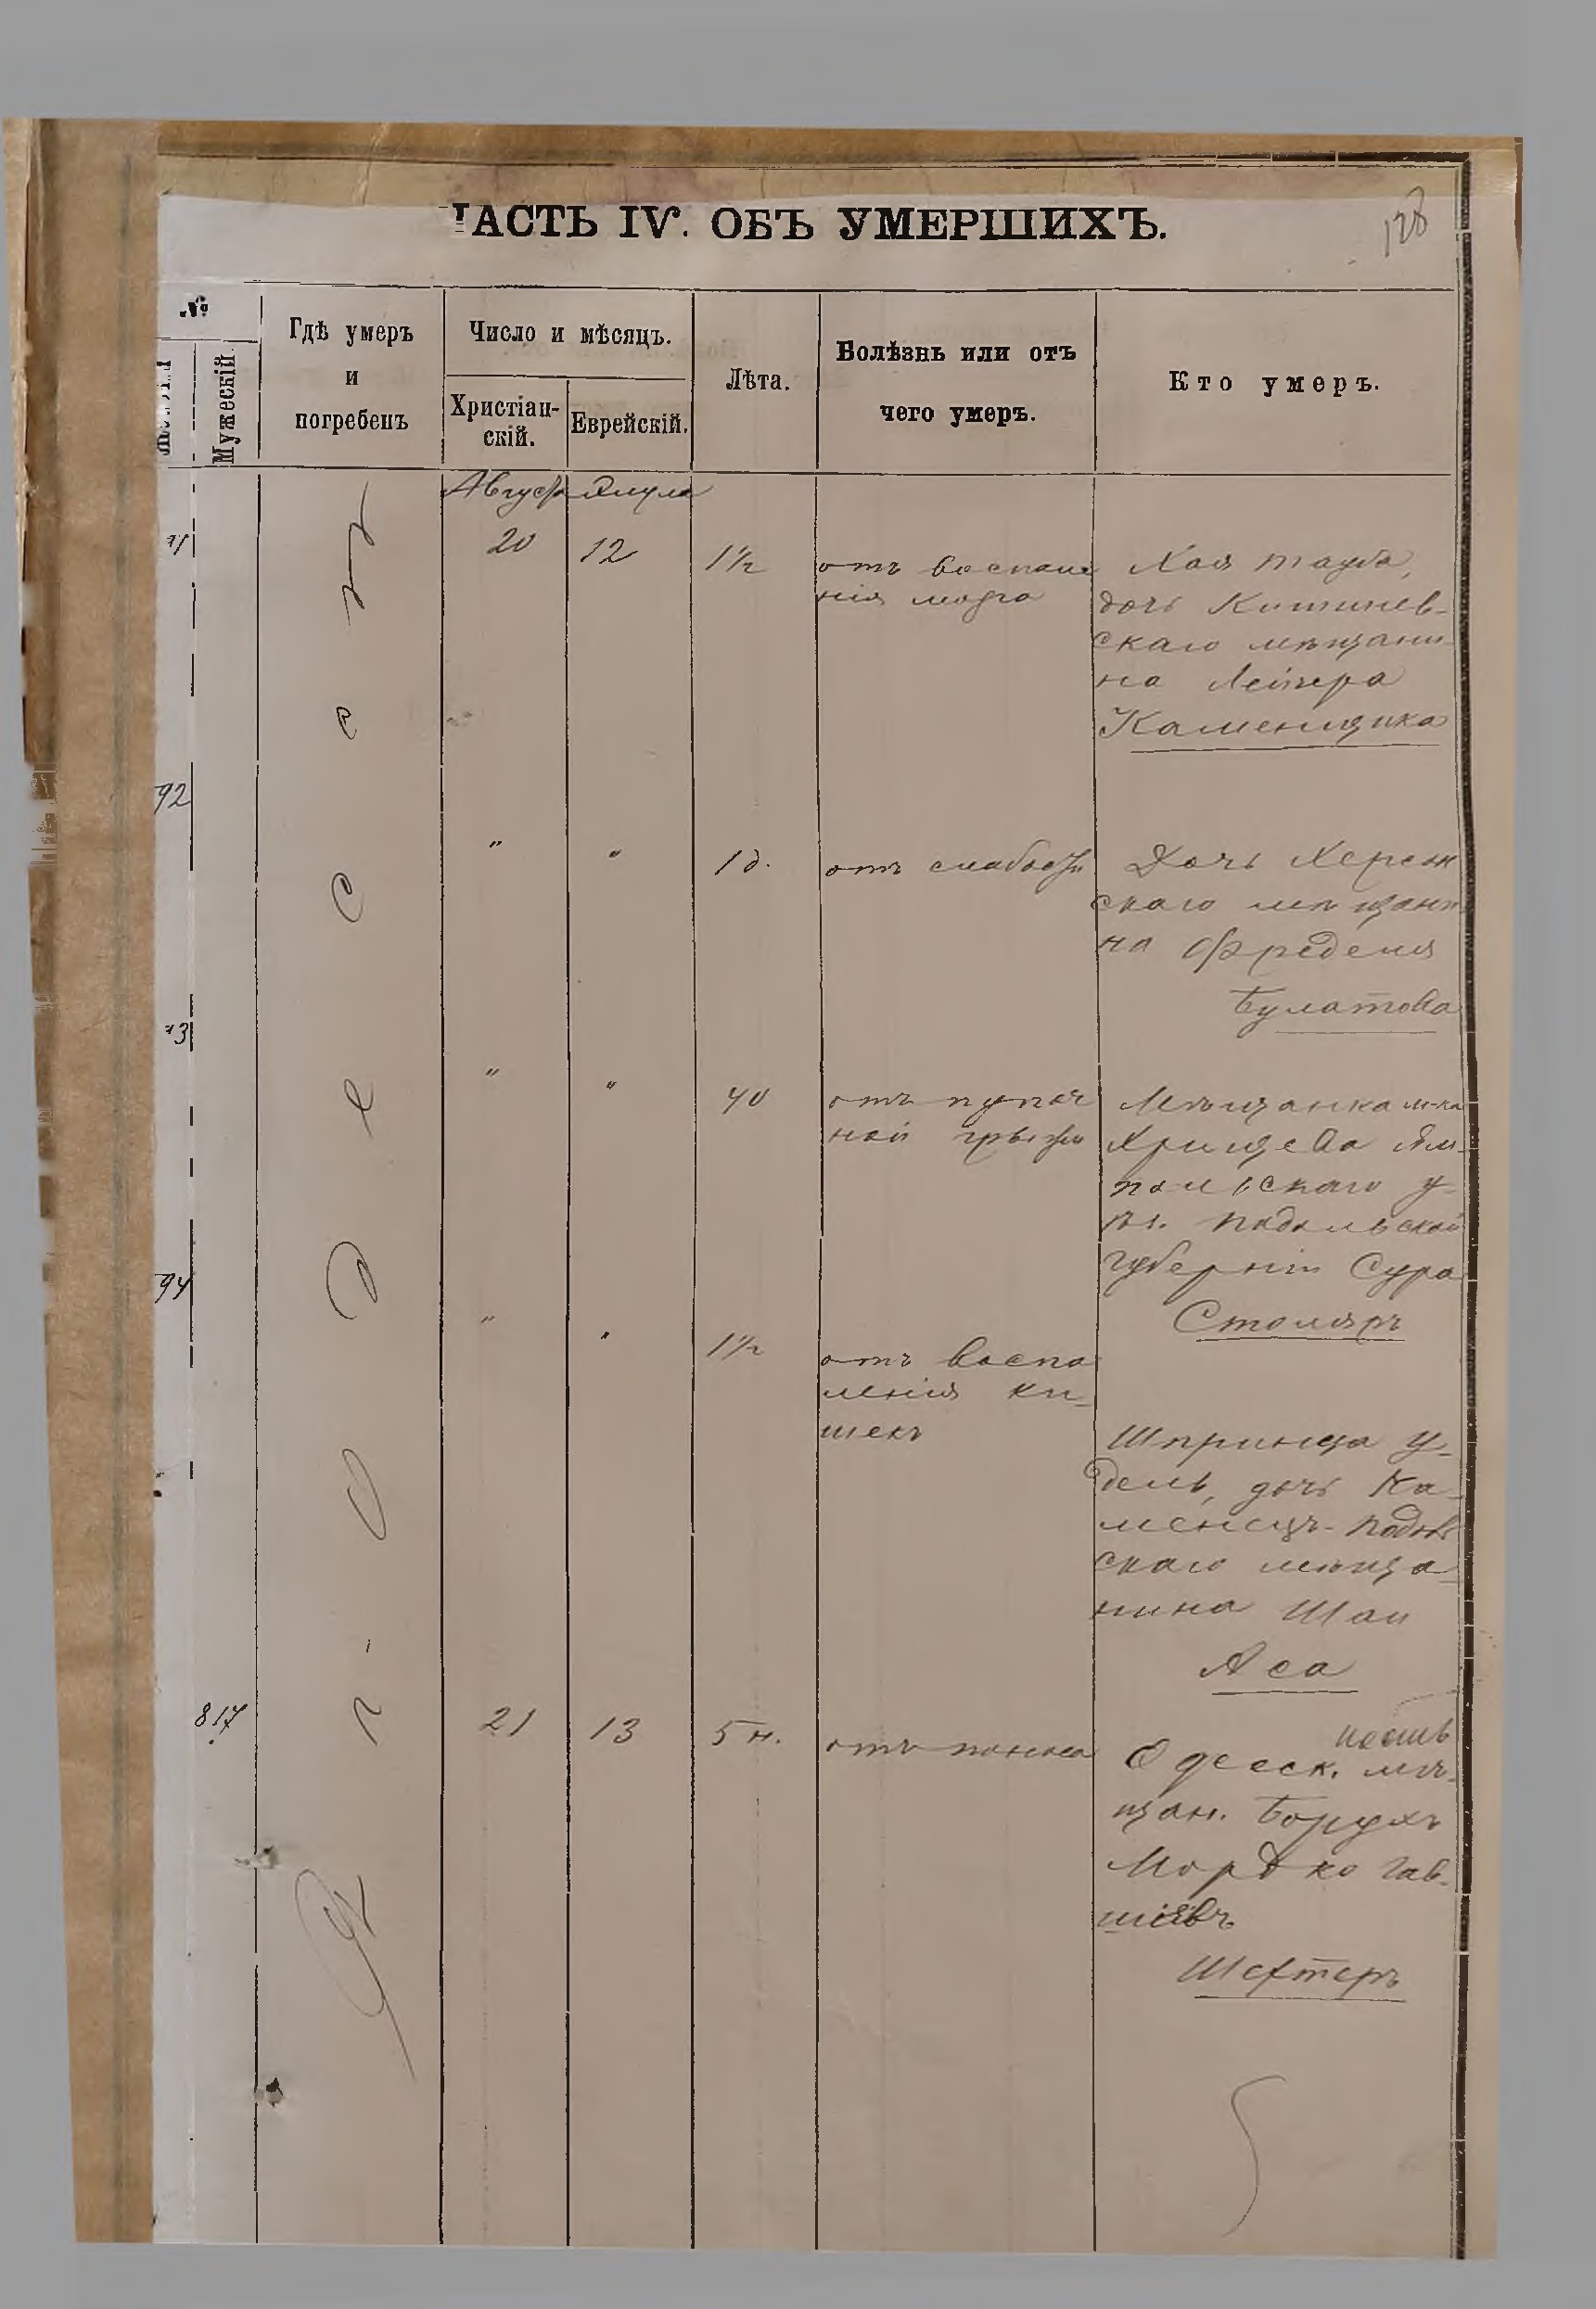 ЧАСТЬ IV. ОБЪ УМЕРШИХЪ.
128
№
Женскій
Мужескій.
Гдѣ умеръ
и
погребенъ
Число и мѣсяцъ.
Христіан-
скій.
Еврейскій.
Лѣта.
Болѣзнь или отъ
чего умеръ.
Кто умеръ.
Въ г. Одессѣ
Август Элула
91
20
12
1½
отъ воспале
нія мозга
Хая Тауба,
дочь Кишинев-
скаго мѣщани-
на Лейзера
Каменщика
92
"
"
1 д.
отъ слабости
Дочь Херсон
скаго мѣщани
на Фределя
Булатова
93
"
"
40
отъ пупоч
ной грыжи
Мѣщанка м-ка
Хрищева Ям-
польскаго у-
ѣз. Подольской
губерніи Сура
Столяръ
94
"
"
1½
отъ воспа
ленія ки-
шекъ
Шпринца У-
дель, дочь Ка-
менецъ-Подол
скаго мѣща-
нина Шаи
Аса
817
21
13
5 н.
отъ поноса
Одесск. мѣ-
щан. Борухъ
Мордко Гав-
Шехтеръ